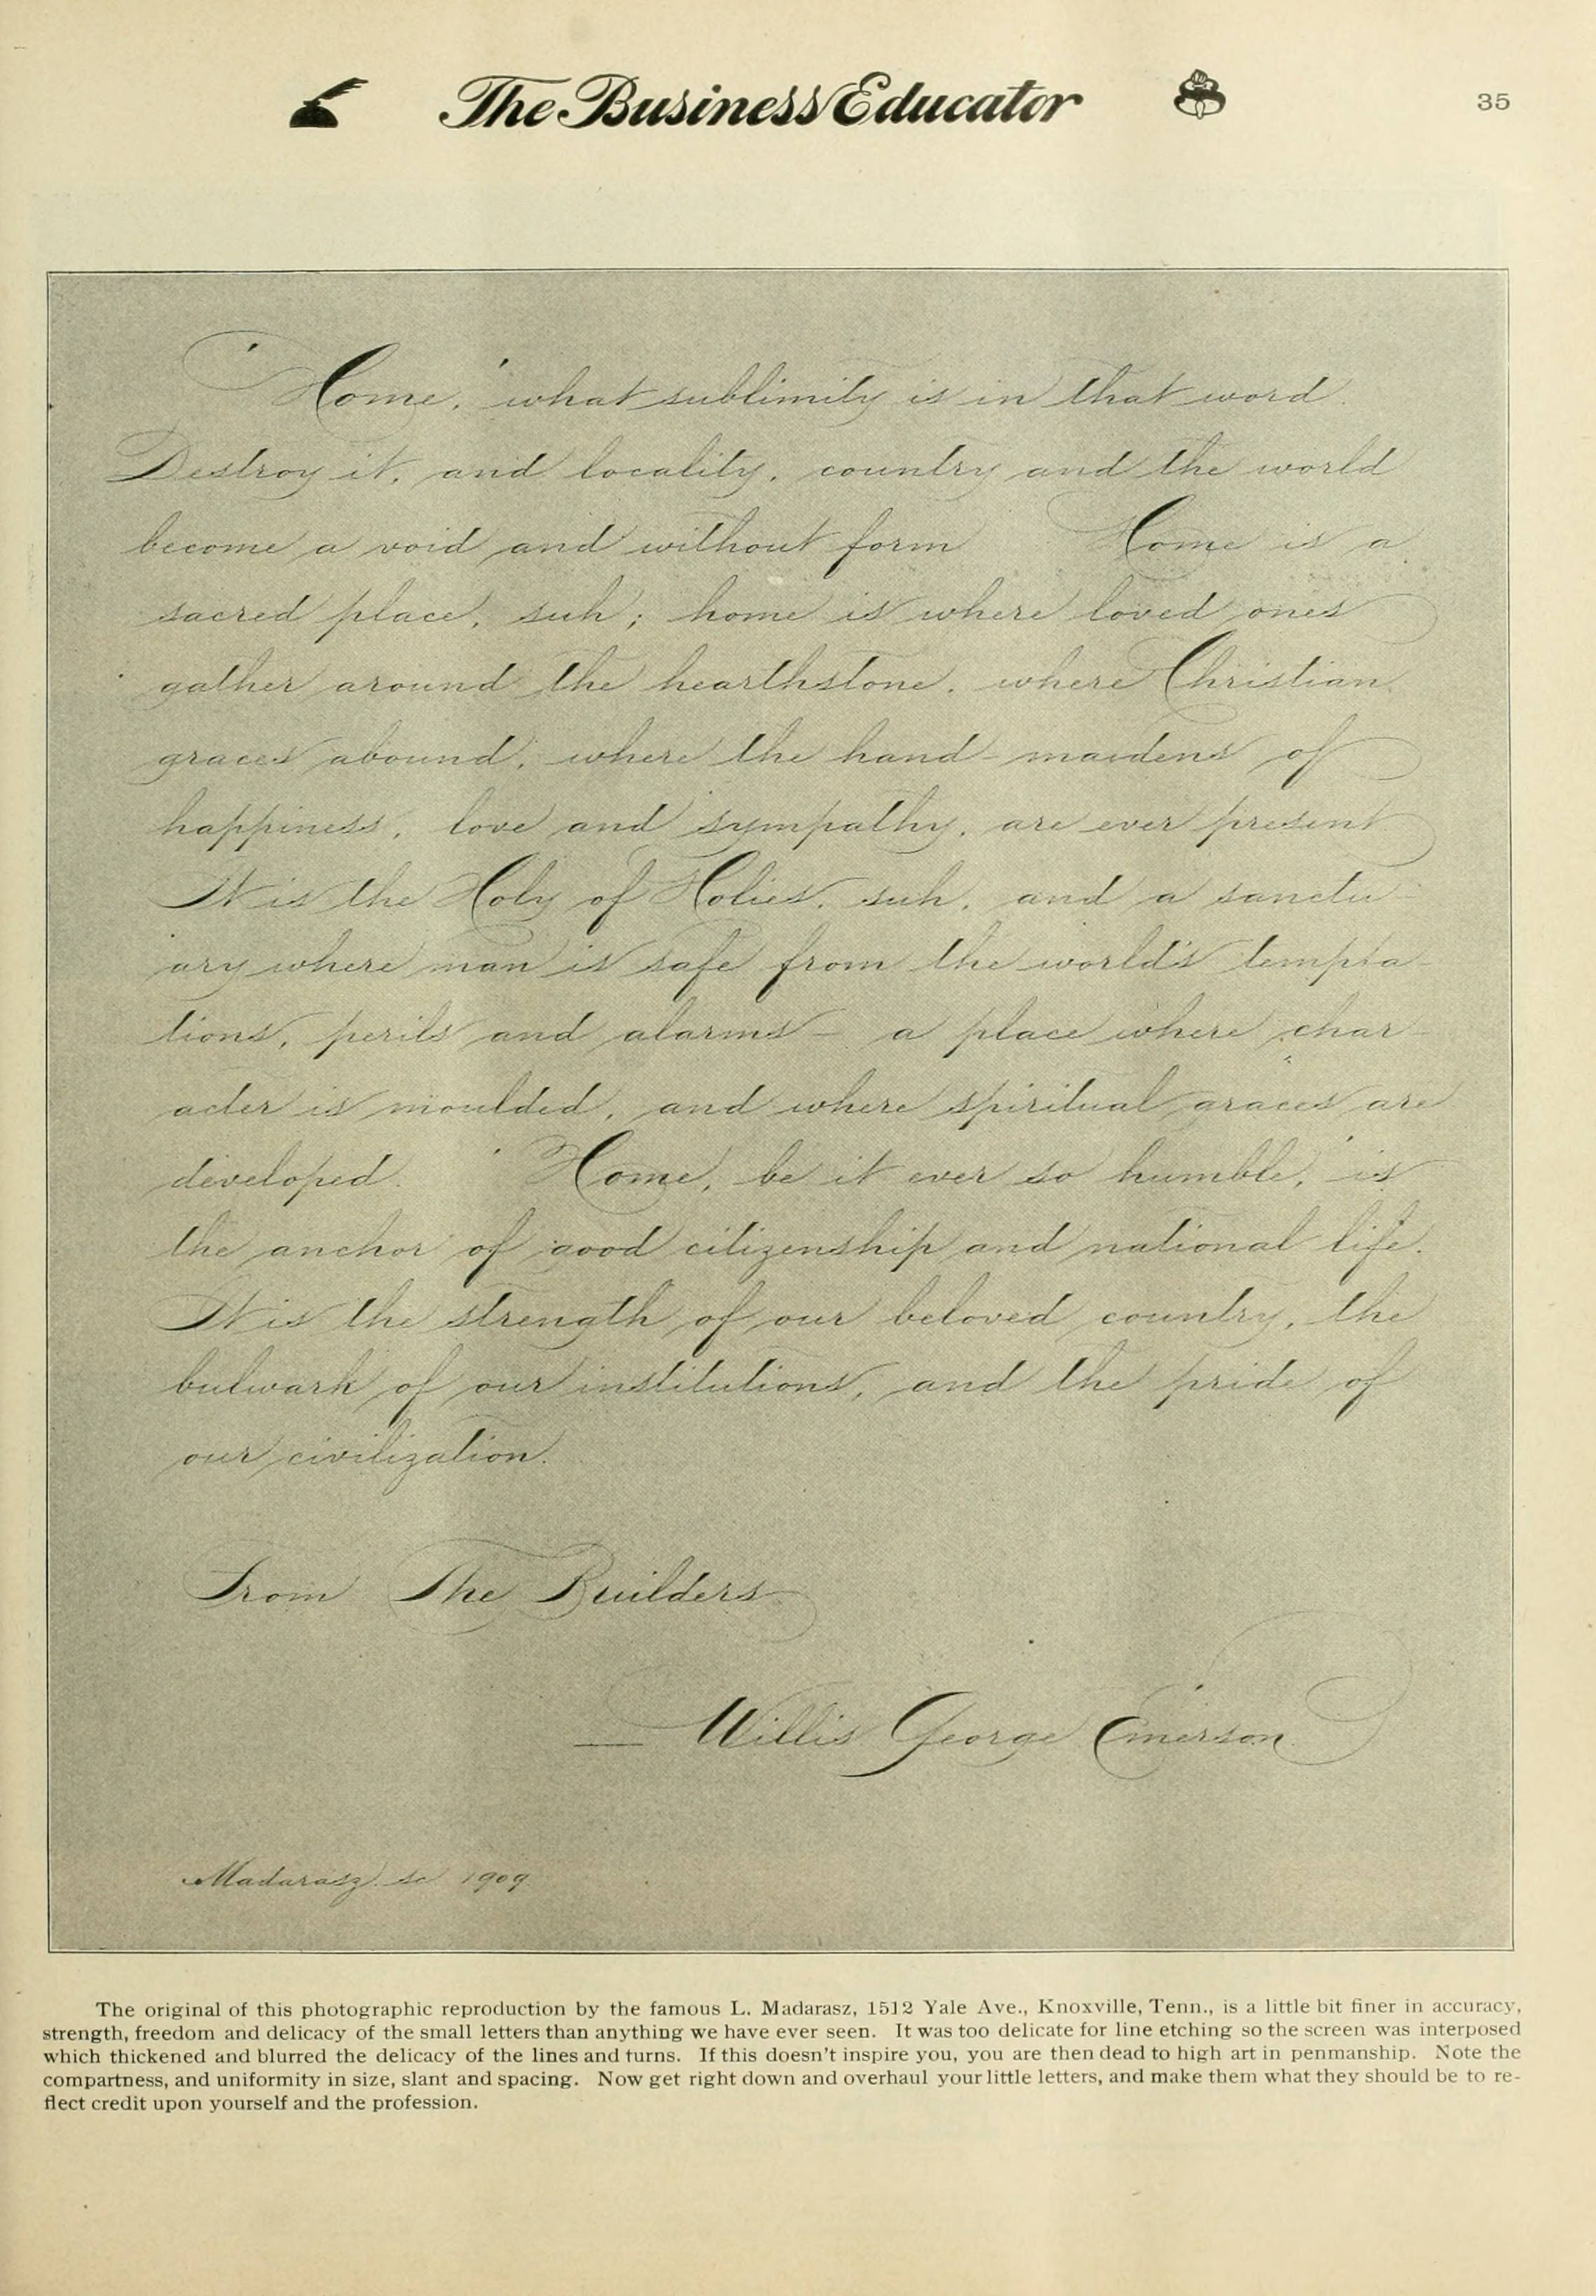 The Business Educator
35
"Home," what sublimity is in that word.
Destroy it, and locality, country and the world
become a void and without form Home is a
sacred place, suh; home is where loved ones
gather around the hearthstone, where Christian
graces abound, where the hand-maidens of
happiness, love and sympathy, are ever present
It is the Holy of Holies, suh, and a sanctu-
ary where man is safe from the world's tempta-
tions, perils and alarms — a place where char-
acter is moulded, and where spiritual graces are
developed. "Home, be it ever so humble," is
the anchor of good citizenship and national life.
It is the strength of our beloved country, the
bulwark of our institutions, and the pride of
our civilization.
From The Builders
— Willis George Emerson.
Madarasz sc 1909.
The original of this photographic reproduction by the famous L. Madarasz, 1512 Yale Ave., Knoxville, Tenn., is a little bit finer in accuracy,
strength, freedom and delicacy of the small letters than anything we have ever seen. It was too delicate for line etching so the screen was interposed
which thickened and blurred the delicacy of the lines and turns. If this doesn't inspire you, you are then dead to high art in penmanship. Note the
compartness, and uniformity in size, slant and spacing. Now get right down and overhaul your little letters, and make them what they should be to re-
flect credit upon yourself and the profession.